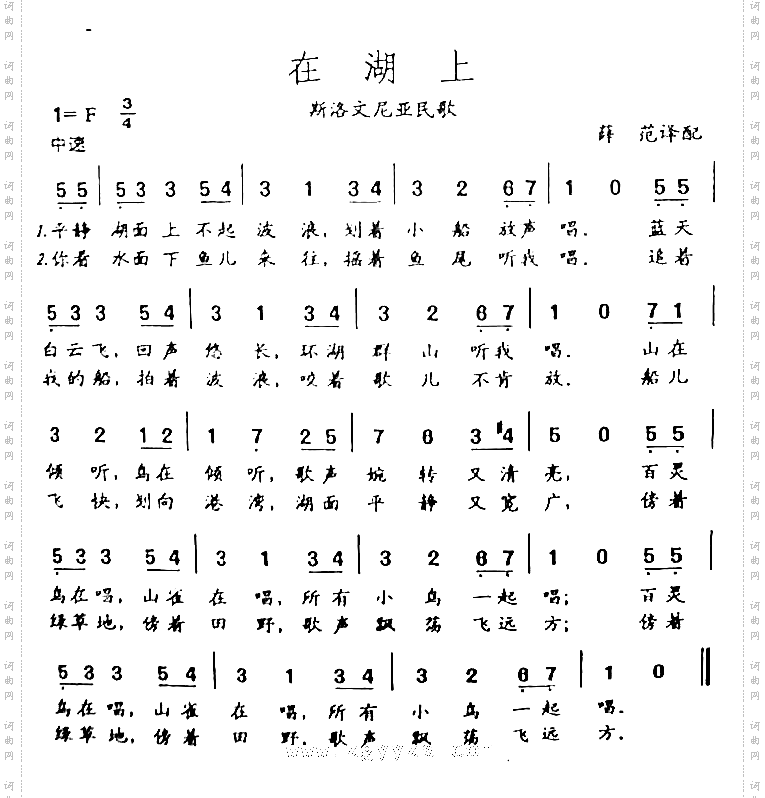 在 湖 上
1= F 3/4
斯洛文尼亚民歌
中速
薛 范译配
5 5 | 5 3 3 5 4 | 3 1 3 4 | 3 2 6 7 | 1 0 5 5 |
1.平静 湖面上 不起 波 浪，划着 小 船 放声 唱． 蓝天
2.你看 水面下 鱼儿 来 往，摇着 鱼 尾 听我 唱． 追着
5 3 3 5 4 | 3 1 3 4 | 3 2 6 7 | 1 0 7 1 |
白云飞，回声 悠 长，环湖 群 山 听我 唱． 山在
我的船，拍着 波 浪，咬着 歌 儿 不肯 放． 船儿
3 2 1 2 | 1 7 2 5 | 7 6 3 #4 | 5 0 5 5 |
倾 听，鸟在 倾 听，歌声 婉 转 又清 亮， 百灵
飞 快，划向 港 湾，湖面 平 静 又宽 广， 傍着
5 3 3 5 4 | 3 1 3 4 | 3 2 6 7 | 1 0 5 5 |
鸟在唱，山雀 在 唱，所有 小 鸟 一起 唱； 百灵
绿草地，傍着 田 野，歌声 飘 荡 飞远 方； 傍着
5 3 3 5 4 | 3 1 3 4 | 3 2 6 7 | 1 0 ‖
鸟在唱，山雀 在 唱，所有 小 鸟 一起 唱．
绿草地，傍着 田 野，歌声 飘 荡 飞远 方．
词曲网